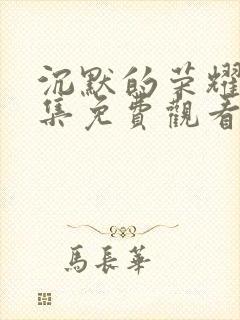 沉默的荣耀
集免費觀看
馬長華